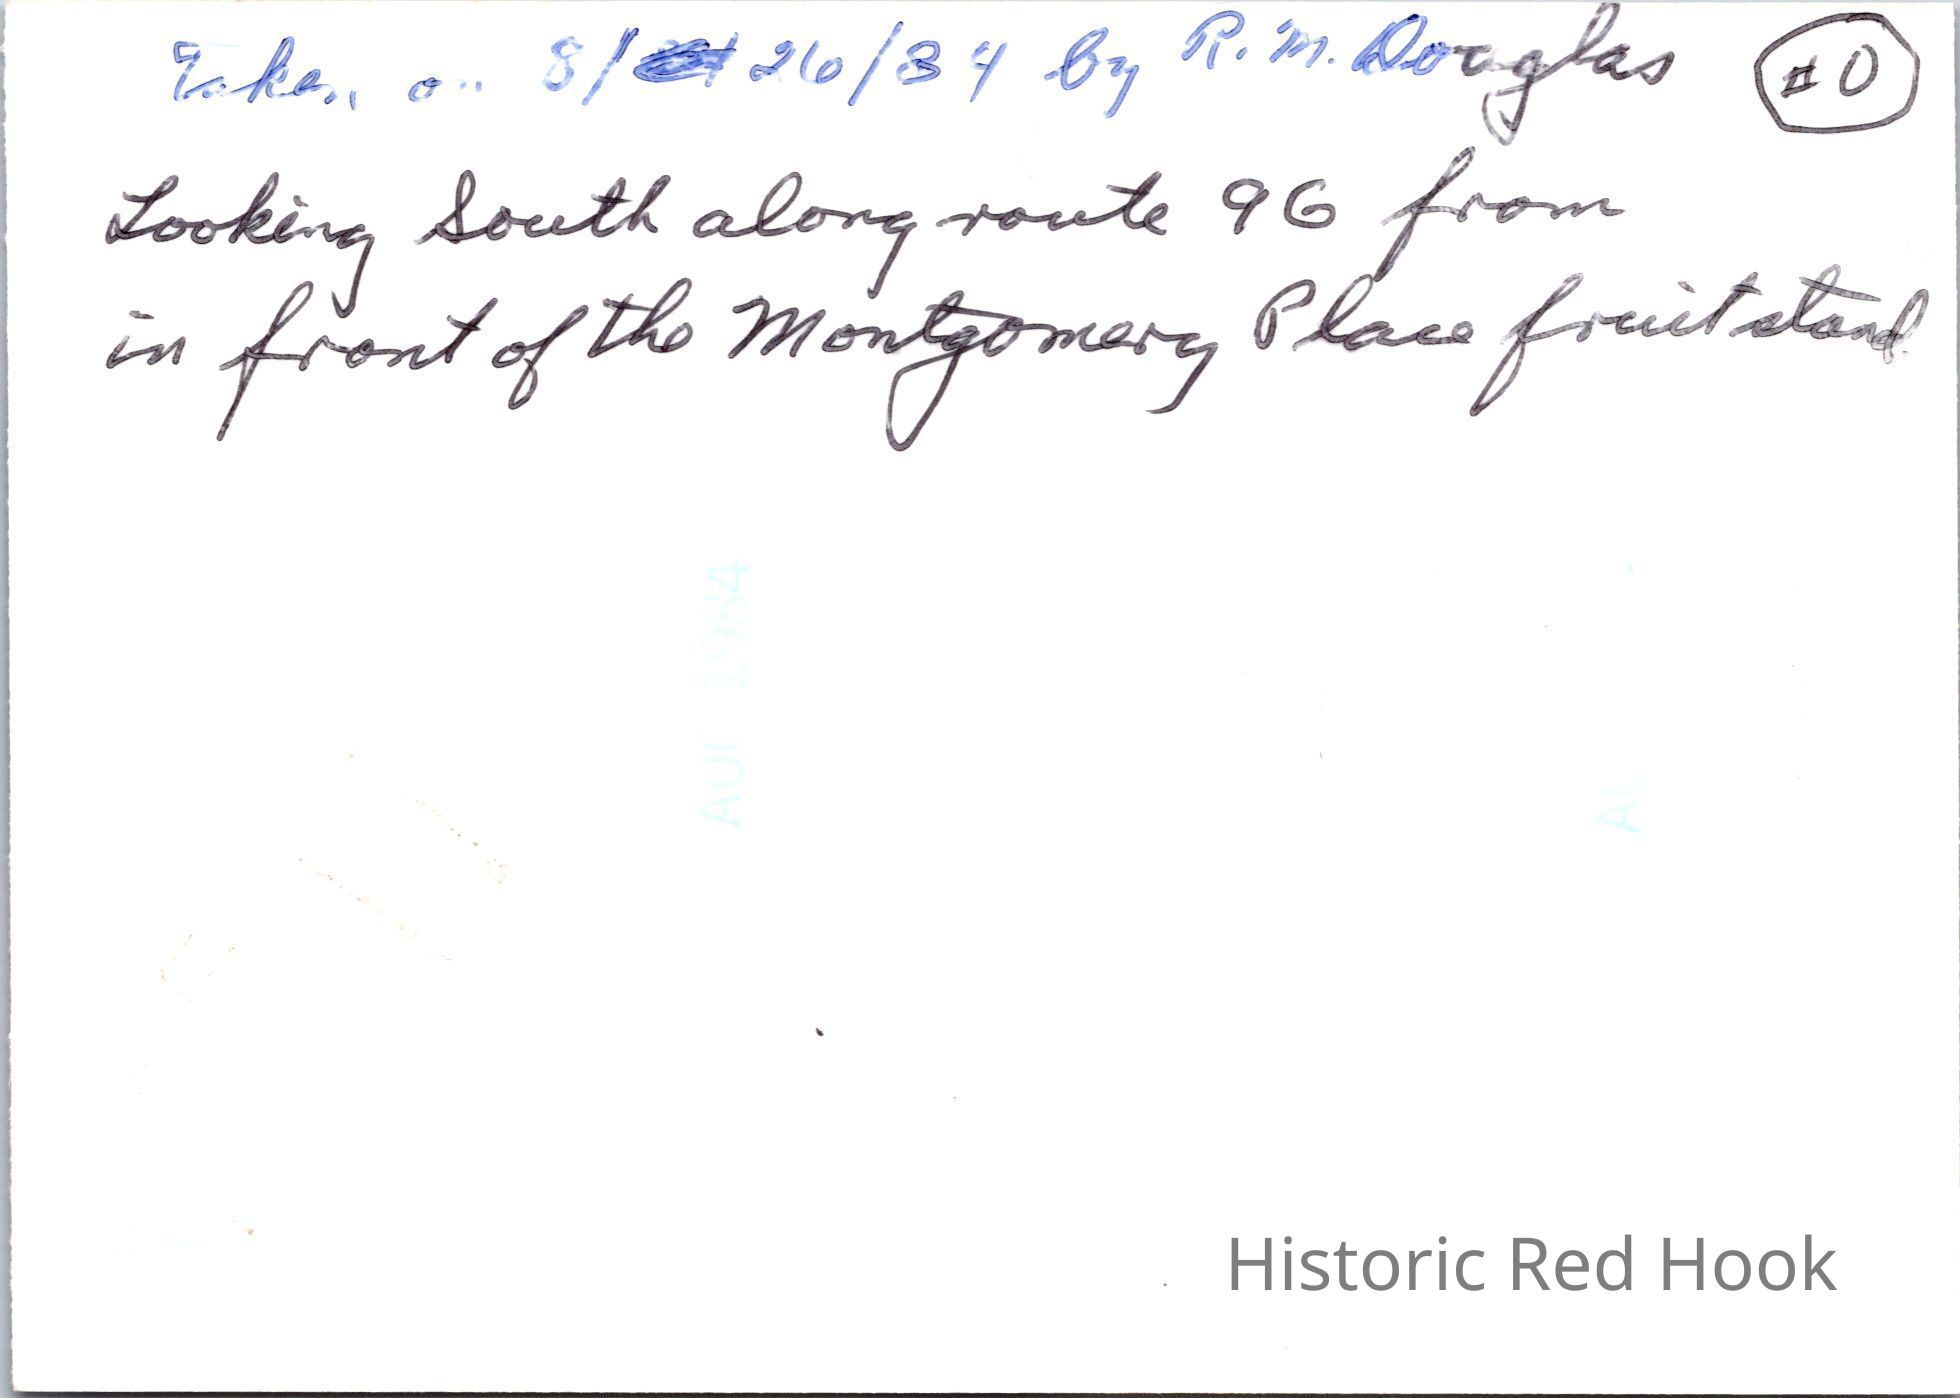 Taken on 8/26/84 by R. M. Douglas
#0
Looking South along route 9G from
in front of the Montgomery Place fruit stand.
AUG 1984
AU
Historic Red Hook